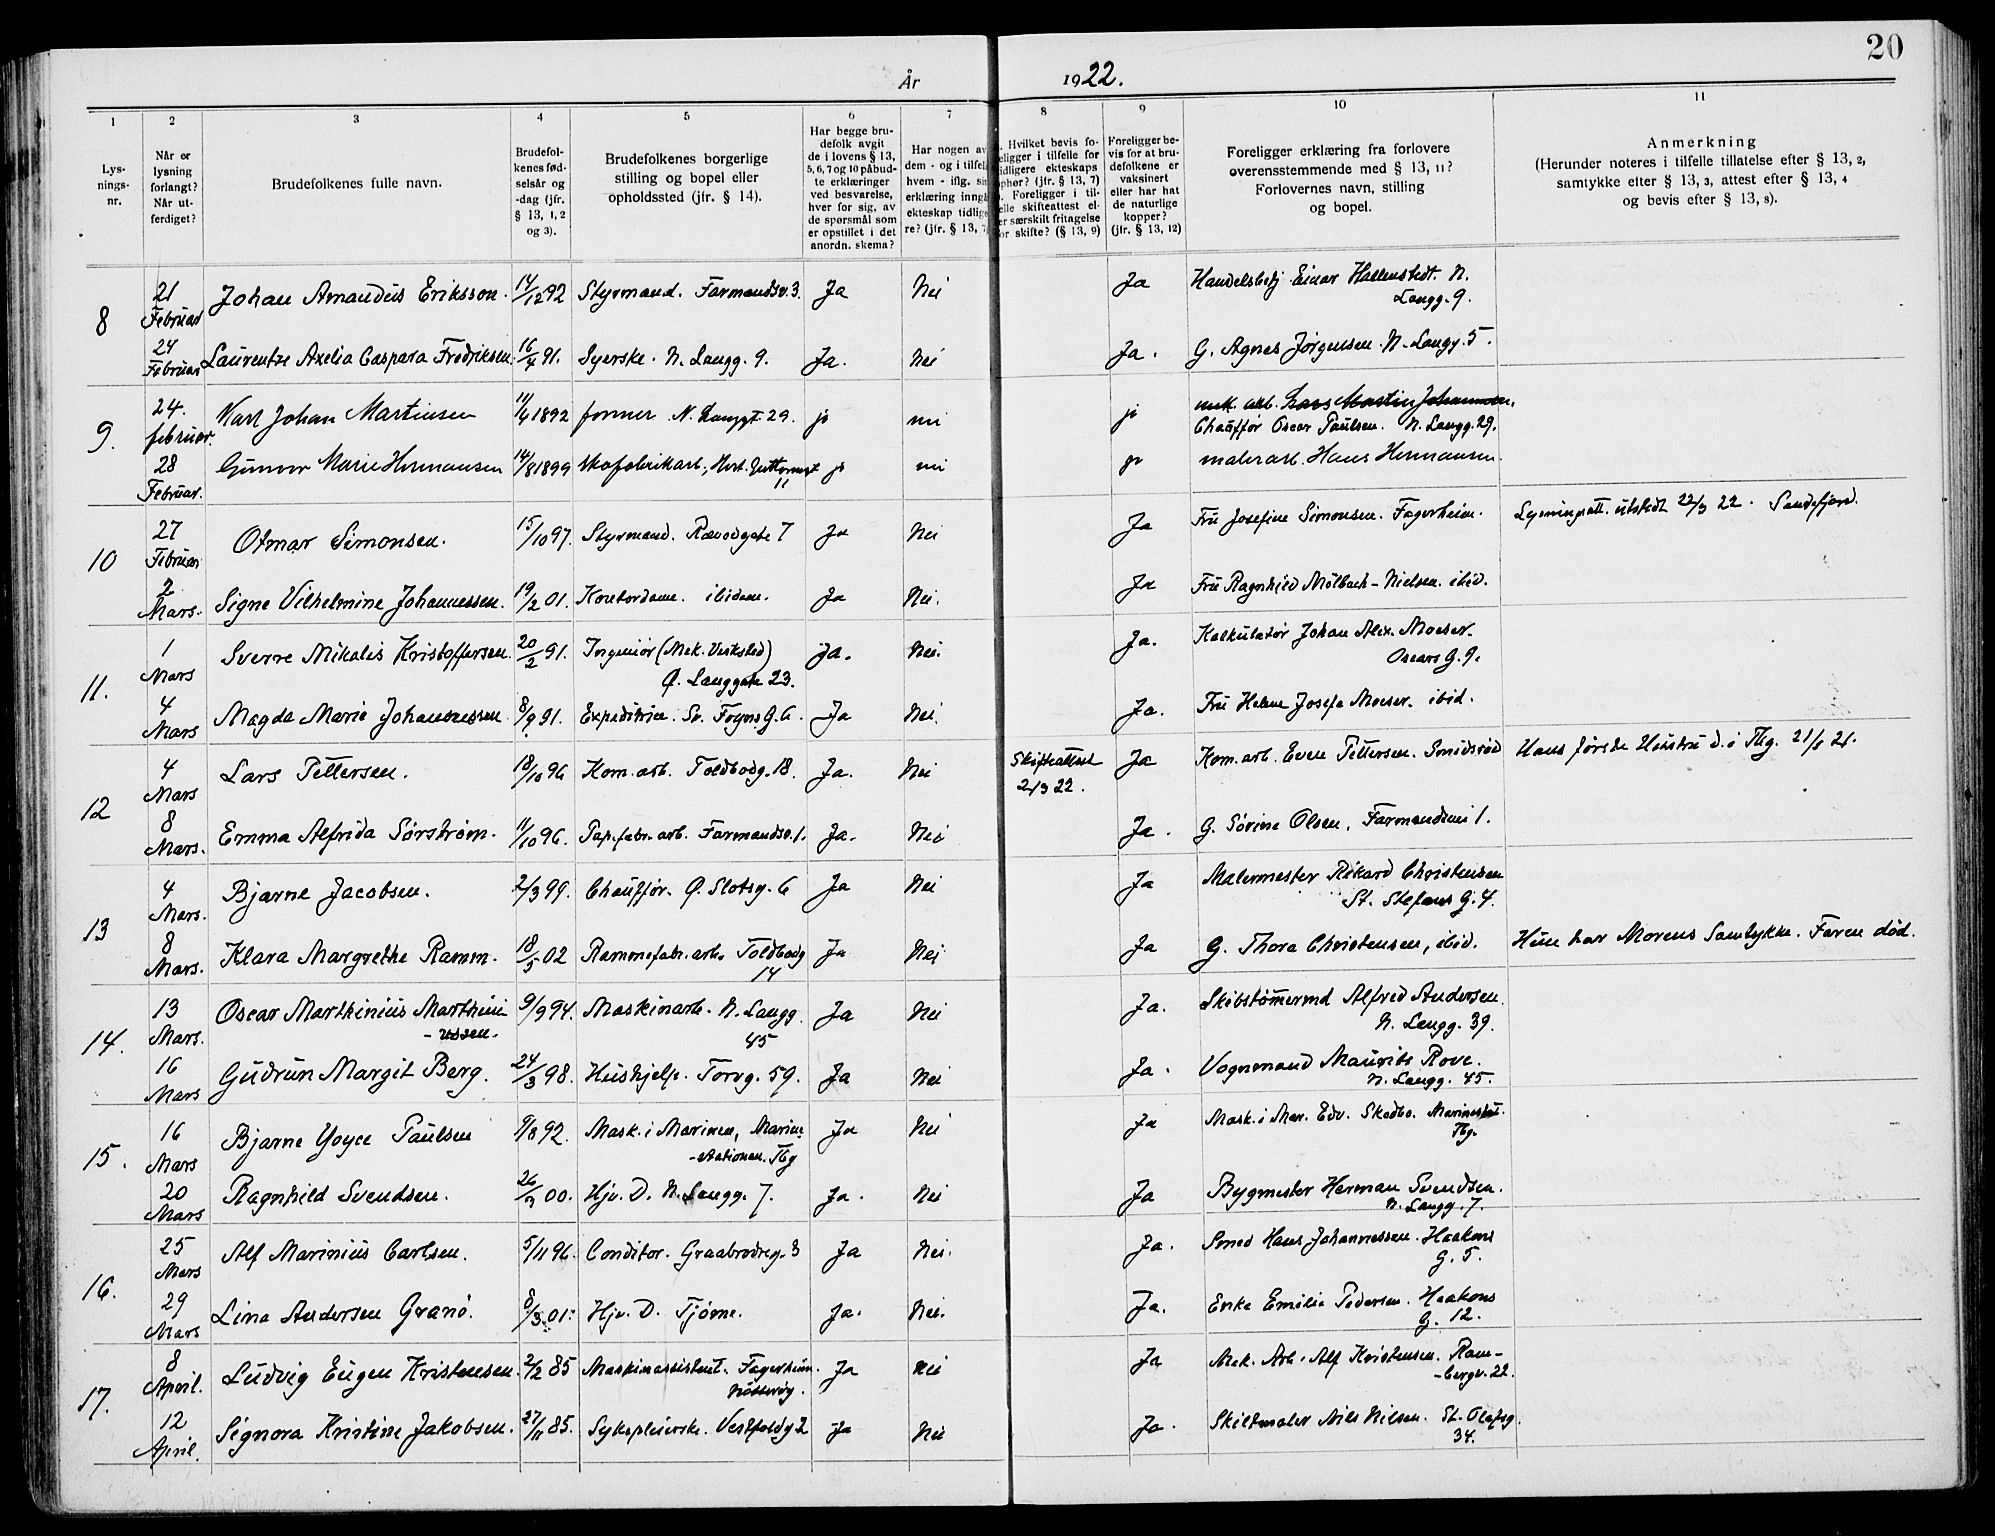 20
År 1922.
1 2 3 4 5 6 7 8 9 10 11
Lys-
nings-
nr.
Når er
lysning
forlangt?
Når ut-
ferdiget?
Brudefolkenes fulle navn.
Brudefol-
kenes fød-
selsår og
-dag (jfr.
§ 13, 1, 2
og 3).
Brudefolkenes borgerlige
stilling og bopel eller
opholdssted (jfr. § 14).
Har begge bru-
defolk avgit
de i lovens § 13,
5, 6, 7 og 10 påbud-
te erklæringer
ved besvarelse,
hver for sig, av
de spørsmål som
er opstillet i det
anordn. skema?
Har nogen av
dem - og i tilfel
hvem - iflg. si
erklæring inngå
ekteskap tidlige
re? (jfr. § 13, 7
Hvilket bevis fo-
eligger i tilfelle for
idligere ekteskaps
ophør? (jfr. § 13, 7)
Foreligger i til-
elle skifteattest el-
er særskilt fritagelse
or skifte? (§ 13, 9)
Foreligger be-
vis for at bru-
defolkene er
vaksinert
eller har hat
de naturlige
kopper?
(jfr. § 13, 12)
Foreligger erklæring fra forlovere
overensstemmende med § 13, 11?
Forlovernes navn, stilling
og bopel.
Anmerkning
(Herunder noteres i tilfelle tillatelse efter § 13, 2,
samtykke efter § 13, 3, attest efter § 13, 4
og bevis efter § 13, 8).
8 21 Februar Johan Amandus Eriksson. 14/12 92 Styrmand. Farmandsv. 3. Ja Nei Ja Handelsbetj. Einar Hallenstedt. N.
Langg. 9.
24 Februar Laurentze Axelia Caspara Fredriksen. 16/4 91. Syerske. N. Langg. 9. Ja. Nei Ja. G. Agnes Jørgensen. N. Langg. 5.
9. 24. februar. Karl Johan Martinsen 11/4 1892 former N. Langgt 29. jo nei jo mek. arb. Lars Martin Johannesen,
Chauffør Oscar Paulsen. N. Langg. 29.
28 Februar. Gunvor Marie Hermansen 14/8 1899 skofabrikarb., jo nei jo malerarb. Hans Hermansen.
11
10 27 Februar Otmar Simonsen. 15/10 97. Styrmand. Ja Nei Ja Fru Josefine Simonsen. Fagerheim. Lysningsatt. utstedt 22/3 22. Sandefjord.
2 Mars. Signe Vilhelmine Johannessen. 19/2 01. Kontordame. ibidem. Ja Nei. Ja Fru Ragnhild Mølbach-Nielsen. ibid.
11. 1 Mars Sverre Mikalis Kristoffersen. 20/2 91. Ingeniør (Mek. Verksted) Ja. Nei. Ja. Kalkulatør Johan Alex. Moeser.
Ø. Langgate 23. Oscars G. 9.
4 Mars Magda Marie Johannessen. 8/9 91. Expeditrice. Sv. Foyns G. 6. Ja Nei. Ja. Fru Helene Josefa Moeser. ibid.
12 4 Mars Lars Pettersen. 18/10 96 Kom. arb. Toldbodg. 18. Ja. Nei Skifteattest Ja Kom. arb. Even Pettersen. Smidsrød Hans første Hustru d. i Tbg. 21/5 21.
2/3 22.
8 Mars. Emma Alfrida Sørstrøm. 11/10 96. Pap. fabr. arb. Farmandsv. 1. Ja. Nei Ja. G. Sørine Olsen, Farmandsvei 1.
13 4 Mars. Bjarne Jacobsen. 2/3 99. Chauffør. Ø. Slotsg. 6 Ja Nei Ja Malermester Rikard Christensen
St. Stefans G. 4.
8 Mars. Klara Margrethe Ramm. 18/5 02 Rammefabr. arb. Toldbodg Ja Nei Ja G. Thora Christensen, ibid. Hun har Morens Samtykke. Faren død.
14
14. 13 Mars. Oscar Marthinius Marthini 9/9 94. Maskinarb. N. Langg. Ja Nei Ja. Skibstømmermd Alfred Andersen.
-ussen. 45 N. Langg. 39.
16 Mars Gudrun Margit Berg. 24/3 98. Hushjelp. Torvg. 59. Ja Nei Ja. Vognmand Mauritz Rove.
N. Langg. 45.
15. 16 Mars Bjarne Yoyce Paulsen 9/8 92. Mask. i Marinen, Marine- Ja Nei Ja Mask. i Mar. Edv. Skodbo. Marinestat.
-stationen. Tbg Tbg.
20 Mars Ragnhild Svendsen. 26/2 00. Hjv. D. N. Langg. 7. Ja. Nei Ja Bygmester Herman Svendsen.
N. Langg. 7.
16. 25 Mars Alf Marinius Carlsen. 5/11 96. Conditor. Graabrødreg. 3 Ja Nei. Ja. Smed Hans Johannessen. Haakons
G. 5.
29 Mars Lina Andersen Granö. 8/3 01. Hjv. D. Tjøme. Ja. Nei. Ja. Enke Emilie Pedersen. Haakons
G. 12.
17. 8 April. Ludvig Eugen Kristensen. 2/2 85 Maskinassistent. Fagerheim. Ja nei Ja Mek. Arb. Alf Kristensen. Ram-
Nøtterøy. -bergv. 22.
12 April. Signora Kristine Jakobsen. 27/11 85. Sykepleierske. Vestfoldg 2 Ja Nei Ja. Skiltmaler Nils Nilsen. St. Olafsg.
34.